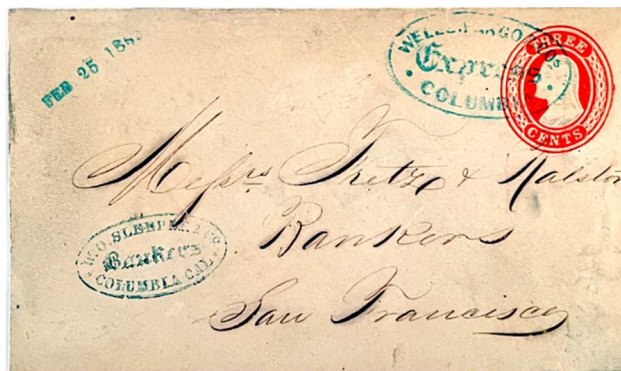 FEB 25 185
WELLS FARGO & CO
Express
COLUMBIA
THREE
CENTS
Messrs Fretz & Ralston
Bankers
San Francisco
W. O. SLEEPER & CO
Bankers
COLUMBIA CAL.